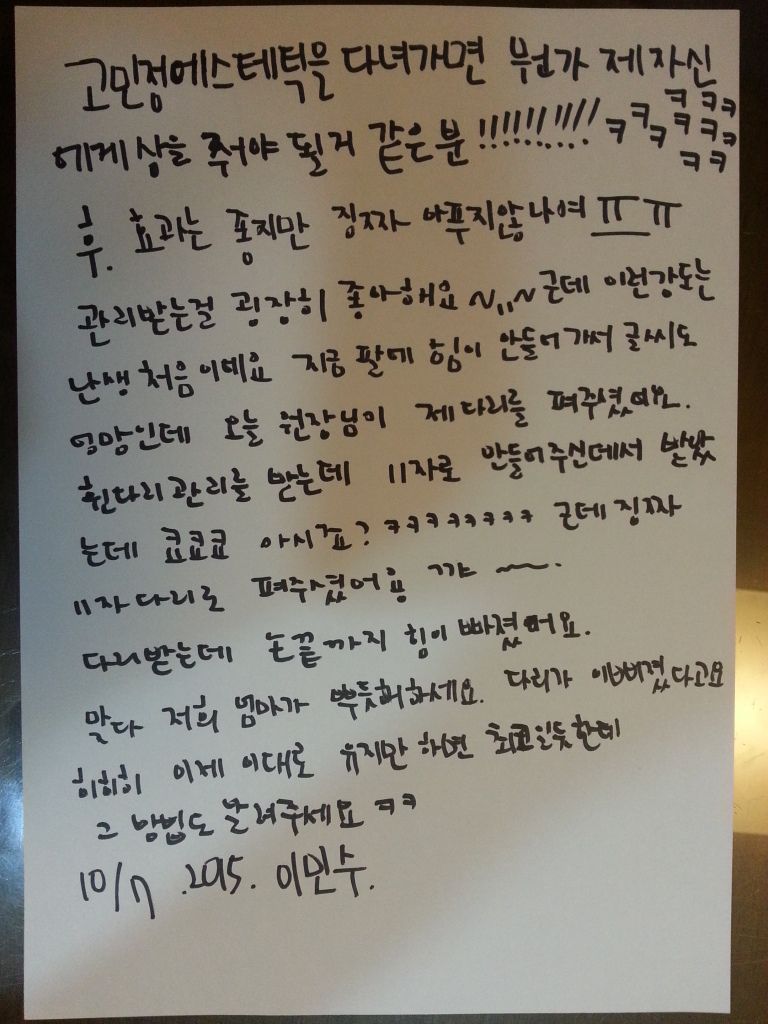 고민정에스테틱을 다녀가면 뭔가 제자신
에게 상을 줘야 될거 같은 분!!!!!!!!!! ㅋㅋㅋㅋㅋㅋㅋㅋㅋㅋ
휴. 효과는 좋지만 징짜 아푸지않나여 ㅠㅠ
관리받는걸 굉장히 좋아해요 ~,,~ 근데 이런강도는
난생 처음이예요 지금 팔에 힘이 안들어가서 글씨도
엉망인데 오늘 원장님이 제 다리를 펴주셨어요.
휜다리관리를 받는데 11자로 만들어주신데서 받았
는데 쿄쿄쿄 아시죠? ㅋㅋㅋㅋㅋㅋㅋㅋ 근데 징짜
11자다리로 펴주셨어용 꺄 ~.
다리받는데 손끝까지 힘이 빠졌어요.
맞다 저희 엄마가 뿌듯해하세요. 다리가 이뻐졌다고요
히히히 이제 이대로 유지만 하면 최고일듯한데
그 방법도 알려주세요 ㅋㅋ
10/7 .2015. 이민수.